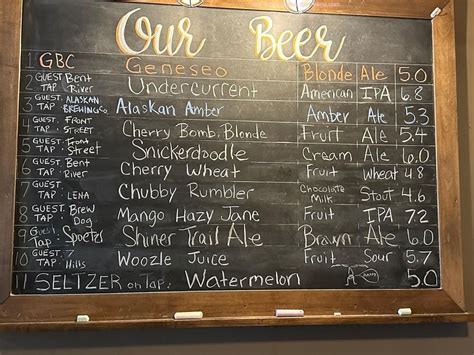 Our Beer
1 GBC Geneseo Blonde Ale 5.0
2 GUEST TAP Bent River Undercurrent American IPA 6.8
3 GUEST TAP ALASKAN BREWING CO Alaskan Amber Amber Ale 5.3
4 GUEST TAP. FRONT STREET Cherry Bomb Blonde Fruit Ale 5.4
5 GUEST TAP. Front Street Snickerdoodle Cream Ale 6.0
6 GUEST TAP. Bent River Cherry Wheat Fruit Wheat 4.8
7 GUEST. TAP. LENA Chubby Rumbler Chocolate Milk Stout 4.6
8 GUEST. TAP. Brew Dog Mango Hazy Jane Fruit IPA 7.2
9 Guest. Tap: Spoetzl Shiner Trail Ale Brown Ale 6.0
10 GUEST. TAP: 7 Hills Woozle Juice Fruit Sour 5.7
11 SELTZER on Tap: Watermelon 5.0